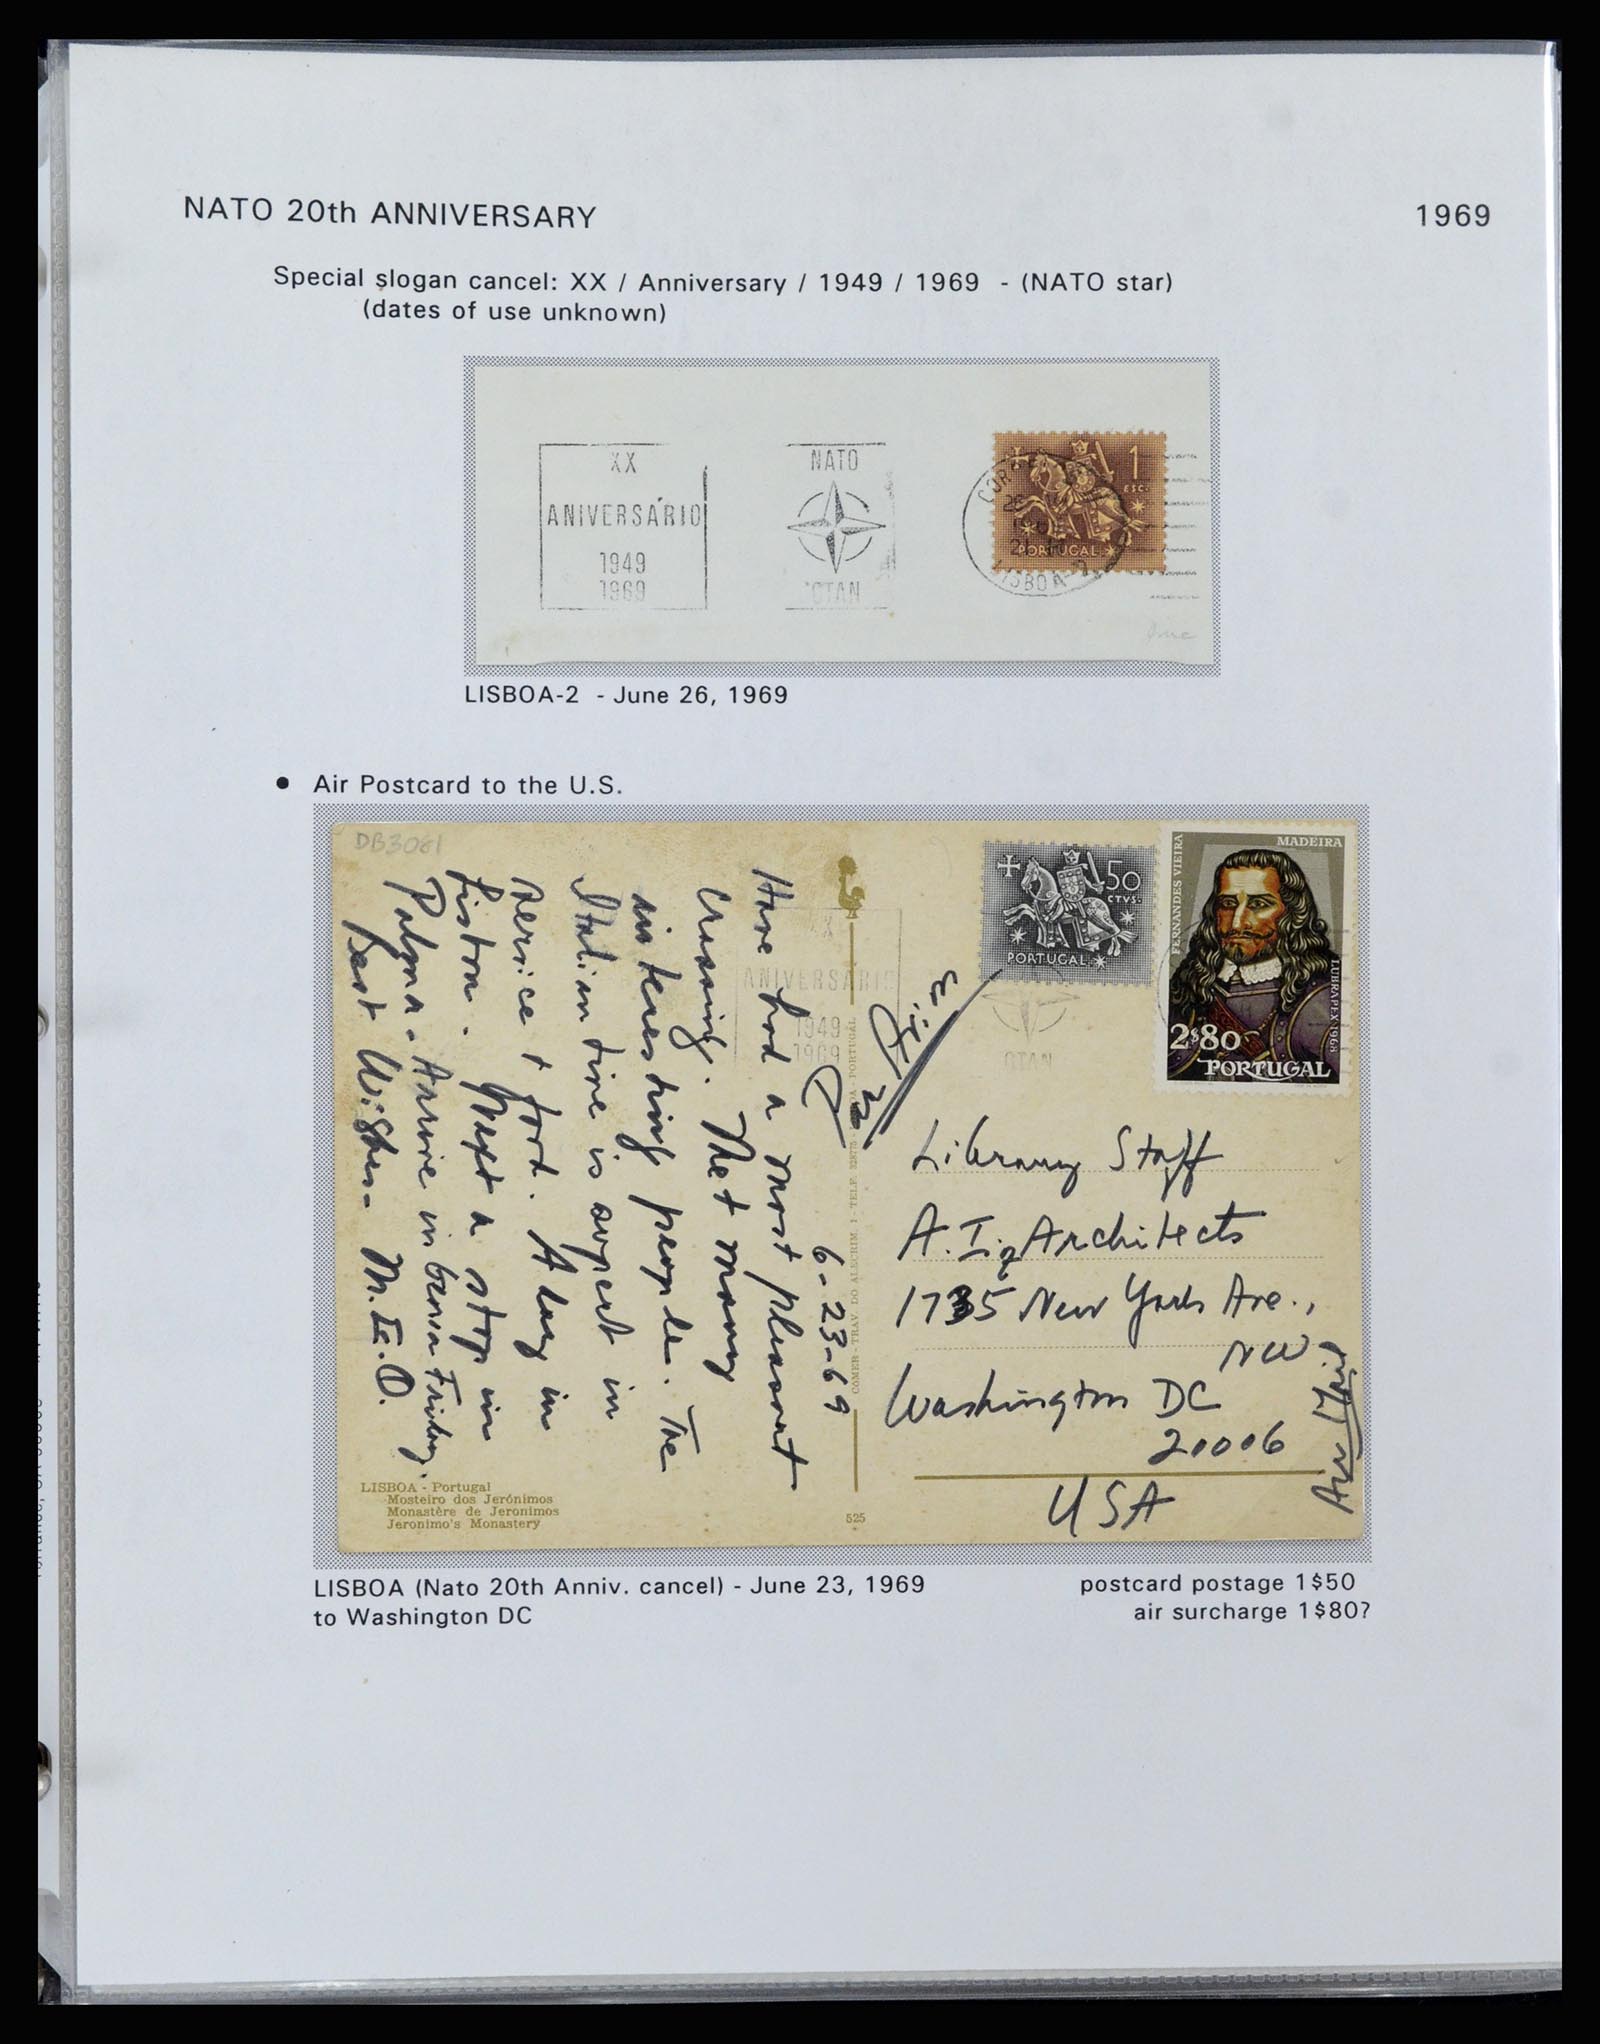 NATO 20th ANNIVERSARY 1969
Special slogan cancel: XX / Anniversary / 1949 / 1969 - (NATO star)
(dates of use unknown)
XX
ANIVERSÁRIO
1949
1969
NATO
OTAN
1
ESC.
PORTUGAL
LISBOA-2
LISBOA-2 - June 26, 1969
• Air Postcard to the U.S.
DB3061
6-23-69
Have had a most pleasant
crossing. Met many
interesting people. The
Italian line is superb in
service & food. A day in
Lisbon. Next a stop in
Palma. Arrive in Genoa Friday.
Best Wishes - M.E.O.
50
CTVS.
PORTUGAL
FERNANDES VIEIRA
MADEIRA
LUBRAPEX 1968
2$80
PORTUGAL
XX
ANIVERSÁRIO
1949
1969
OTAN
Library Staff
A.I. of Architects
1735 New York Ave.,
NW
Washington DC
20006
USA
Air Mail
LISBOA - Portugal
Mosteiro dos Jerónimos
Monastère de Jeronimos
Jeronimo's Monastery
525
LISBOA (Nato 20th Anniv. cancel) - June 23, 1969
to Washington DC
postcard postage 1$50
air surcharge 1$80?